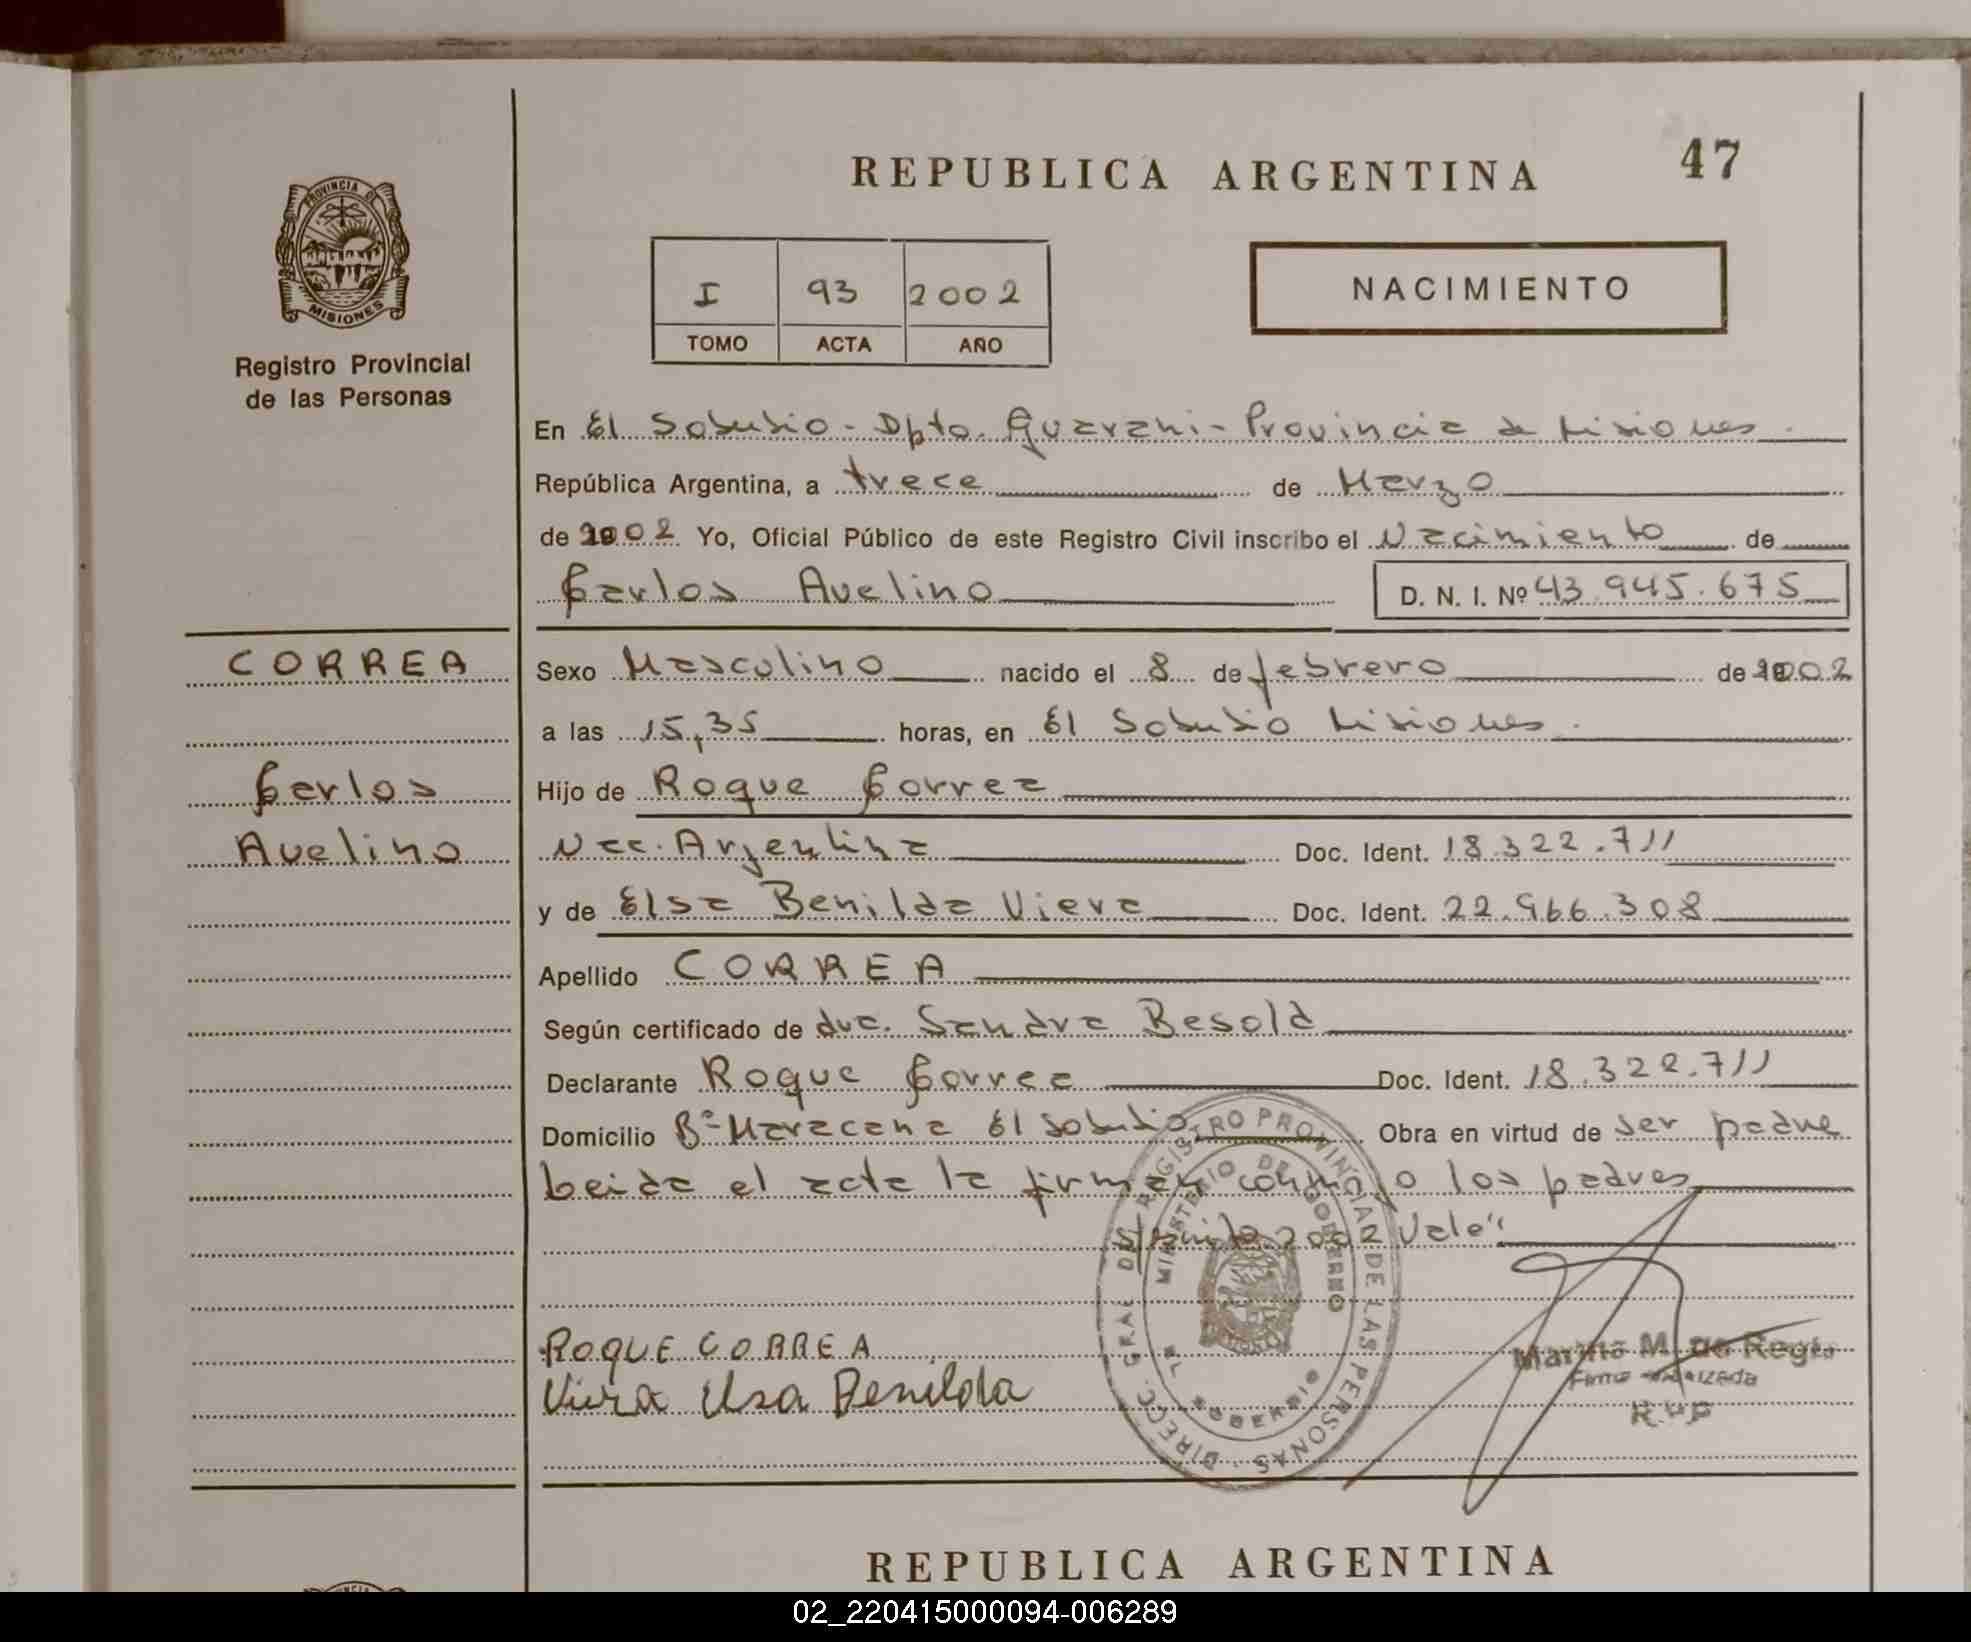 REPUBLICA ARGENTINA
47
PROVINCIA DE
MISIONES
Registro Provincial
de las Personas
I 93 2002
TOMO ACTA AÑO
NACIMIENTO
En El Soberbio - Dpto. Guarani - Provincia de Misiones.
República Argentina, a trece de Marzo
de 2002 Yo, Oficial Público de este Registro Civil inscribo el Nacimiento de
Carlos Avelino D. N. I. Nº 43.945.675
CORREA
Carlos
Avelino
Sexo Masculino nacido el 8 de febrero de 2002
a las 15,35 horas, en El Soberbio Misiones.
Hijo de Roque Correa
Nac. Argentina Doc. Ident. 18.322.711
y de Elsa Benilda Viera Doc. Ident. 22.966.308
Apellido CORREA
Según certificado de dra. Sandra Besold
Declarante Roque Correa Doc. Ident. 18.322.711
Domicilio Bº Maracana El Soberbio Obra en virtud de ser padre
Leida el acta la firman conmigo los padres
2002 Vale"
ROQUE CORREA
Viera Elsa Benilda
DIRECC. GRAL DEL REGISTRO PROVINCIAL DE LAS PERSONAS
MINISTERIO DE GOBIERNO
EL SOBERBIO
M. de Regis
Firma Autorizada
R.P.P
REPUBLICA ARGENTINA
02_220415000094-006289